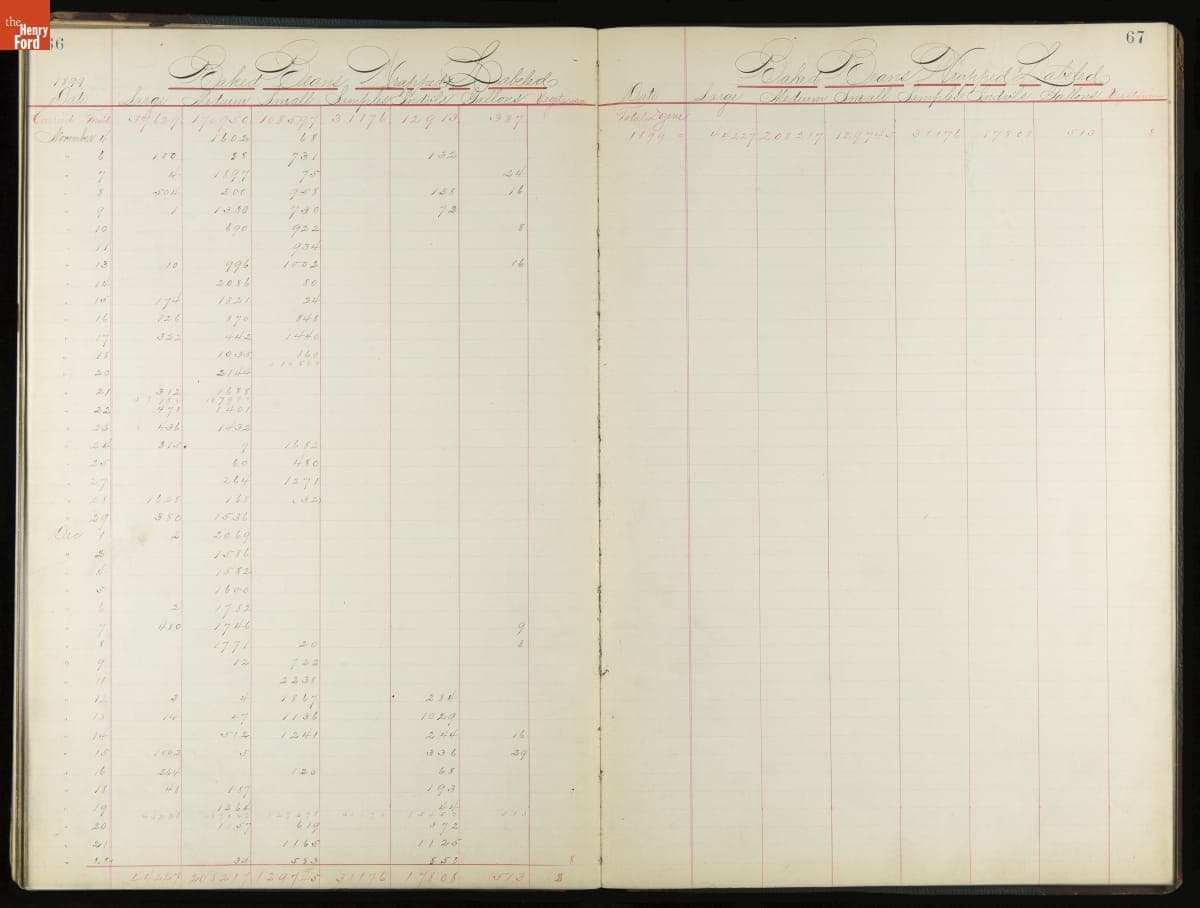 the Henry Ford
66
Baked Beans Wrapped & Labeled
1899
Date Large Medium Small Sample Pictnic Gallons Vegetarian
34629 170950 108597 31176 12913 387
November 4 1602 68
" 6 100 88 731 132
" 7 4 1897 75 24
" 8 504 200 958 128 16
" 9 1 1380 730 72
" 10 690 922 8
" 11 934
" 13 10 996 1002 16
" 14 2086 80
" 15 174 1321 24
" 16 126 870 848
" 17 322 442 1446
" 18 1035 160
" 20 2144
" 21 312 1688
" 22 478 1401
" 23 436 1432
" 24 9 1682
" 25 60 480
" 27 264 1278
" 28 1628 168 (32)
" 29 380 1536
Dec 1 2 2069
" 2 1586
" 4 1582
" 5 1600
" 6 2 1782
" 7 480 1746 9
" 8 1771 20 8
" 9 12 722
" 11 2238
" 12 3 4 1867 284
" 13 14 47 1136 1029
" 14 512 1248 244 16
" 15 5 336 29
" 16 264 120 68
" 18 48 187 193
" 19 1264 44
" 20 1157 619 372
" 21 1165 1125
" 22 34 583 858 8
44227 208217 129745 31176 17808 513 8
67
Baked Beans Wrapped Labeled
Date Large Medium Small Sample Gallons Vegetarian
1899 = 44227 208217 129745 31176 17808 513 8